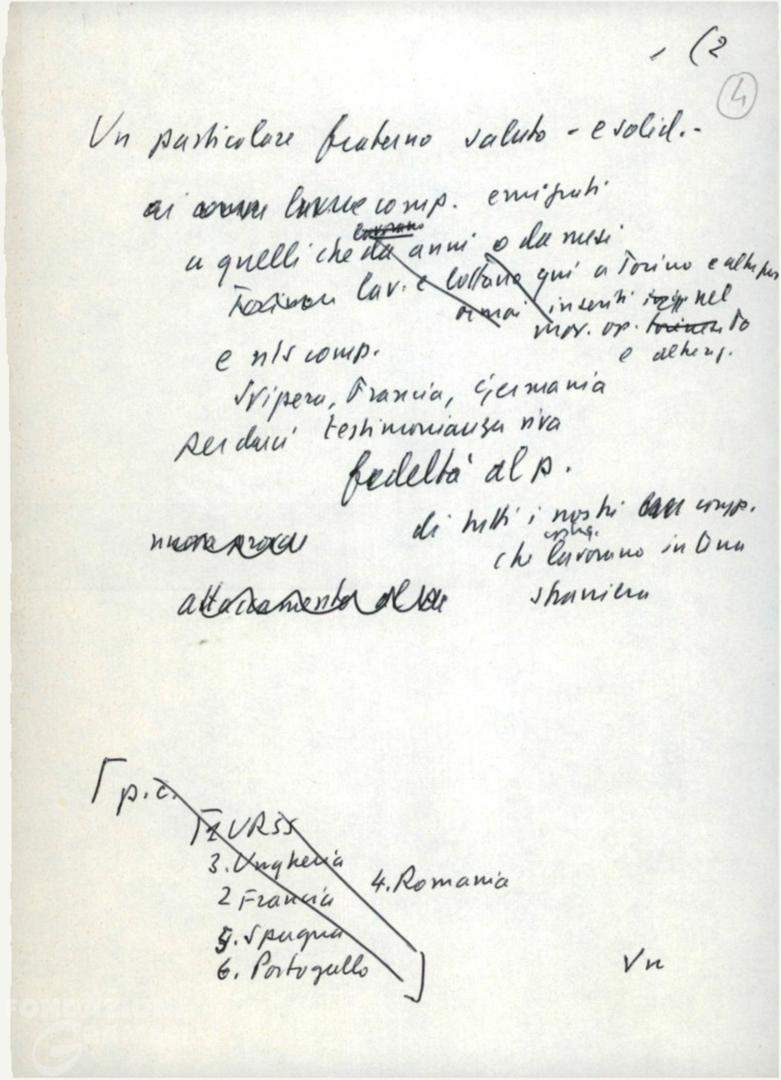 (2
4
Un particolare fraterno saluto - e solid. -
ai comp. emigrati
lavorano
a quelli che da anni o da mesi
lav. e lottano qui a Torino e
ormai inseriti nel
mov. op.
e
e ns comp.
Svizzera, Francia, Germania
per darci testimonianza viva
fedeltà al p.
di tutti i nostri comp.
che lavorano in
nuova prova
attaccamento al
straniera
p.c.
1 URSS
3. Ungheria
4. Romania
2 Francia
5. Spagna
6. Portogallo
Un
FONDAZIONE
GRAMSCI